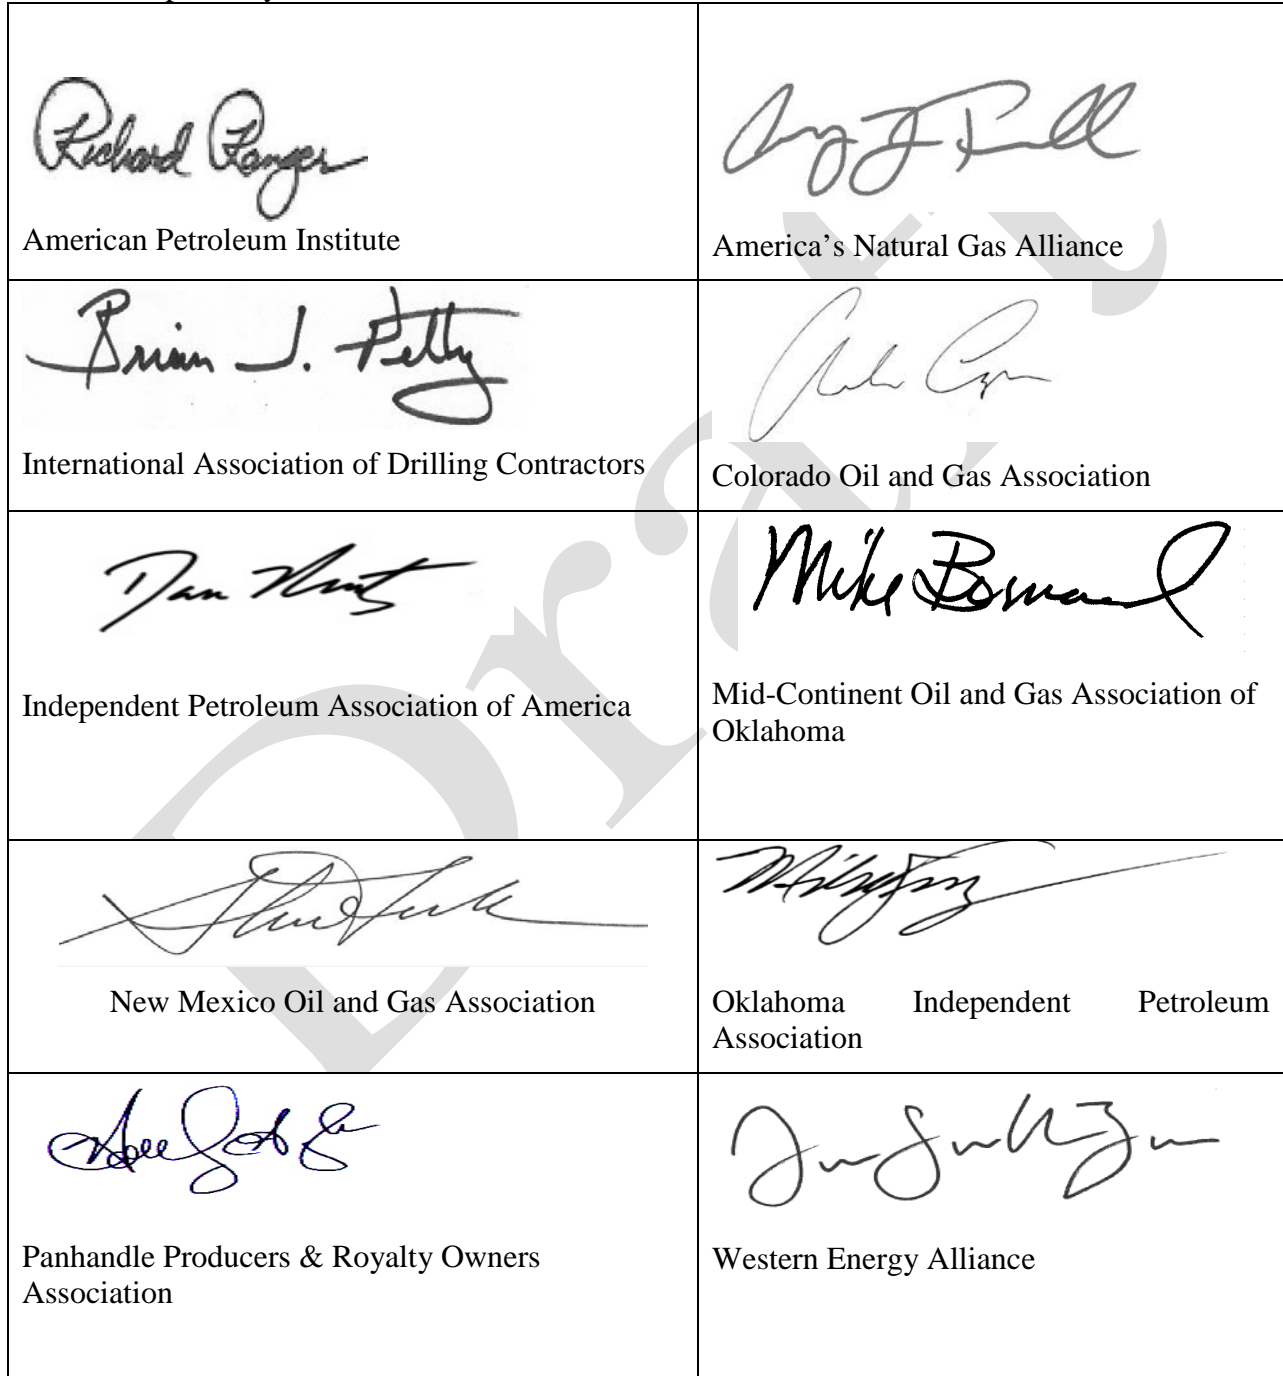 Richard Ranger
American Petroleum Institute
America’s Natural Gas Alliance
Brian J. Petty
International Association of Drilling Contractors
Colorado Oil and Gas Association
Dan
Independent Petroleum Association of America
Mike
Mid-Continent Oil and Gas Association of
Oklahoma
New Mexico Oil and Gas Association
Oklahoma Independent Petroleum
Association
Panhandle Producers & Royalty Owners
Association
Western Energy Alliance
Draft